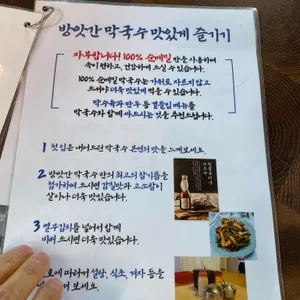 방앗간 막국수 맛있게 즐기기
자부합니다! 100% 순메밀 만을 사용하여
속이 편하고, 건강하게 드실 수 있습니다.
100% 순메밀 막국수는 가위로 자르지 않고
드셔야 더욱 맛있게 먹을 수 있습니다.
막수육과 만두 등 곁들임 메뉴를
막국수와 함께 싸드시는 것을 추천드립니다.
1 첫 입은 내어드린 막국수 본연의 맛을 느껴보세요.
2 방앗간 막국수 만의 최고의 참기름을
첨가하여 드시면 감칠맛과 고소함이
살아나 더욱 맛있습니다.
3 열무김치를 넣어서 함께
비벼 드시면 더욱 맛있습니다.
따라서 설탕, 식초, 겨자 등을
보세요.